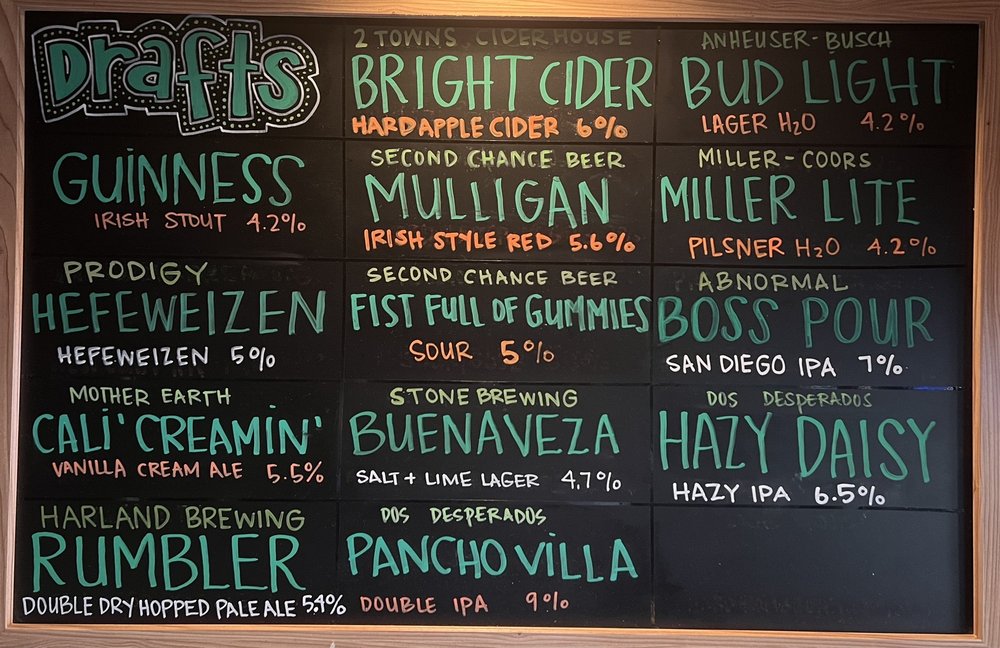 Drafts
GUINNESS
IRISH STOUT 4.2%
PRODIGY
HEFEWEIZEN
HEFEWEIZEN 5%
MOTHER EARTH
CALI' CREAMIN'
VANILLA CREAM ALE 5.5%
HARLAND BREWING
RUMBLER
DOUBLE DRY HOPPED PALE ALE 5.4%
2 TOWNS CIDERHOUSE
BRIGHT CIDER
HARD APPLE CIDER 6%
SECOND CHANCE BEER
MULLIGAN
IRISH STYLE RED 5.6%
SECOND CHANCE BEER
FIST FULL OF GUMMIES
SOUR 5%
STONE BREWING
BUENAVEZA
SALT + LIME LAGER 4.7%
DOS DESPERADOS
PANCHO VILLA
DOUBLE IPA 9%
ANHEUSER-BUSCH
BUD LIGHT
LAGER H2O 4.2%
MILLER-COORS
MILLER LITE
PILSNER H2O 4.2%
ABNORMAL
BOSS POUR
SAN DIEGO IPA 7%
DOS DESPERADOS
HAZY DAISY
HAZY IPA 6.5%